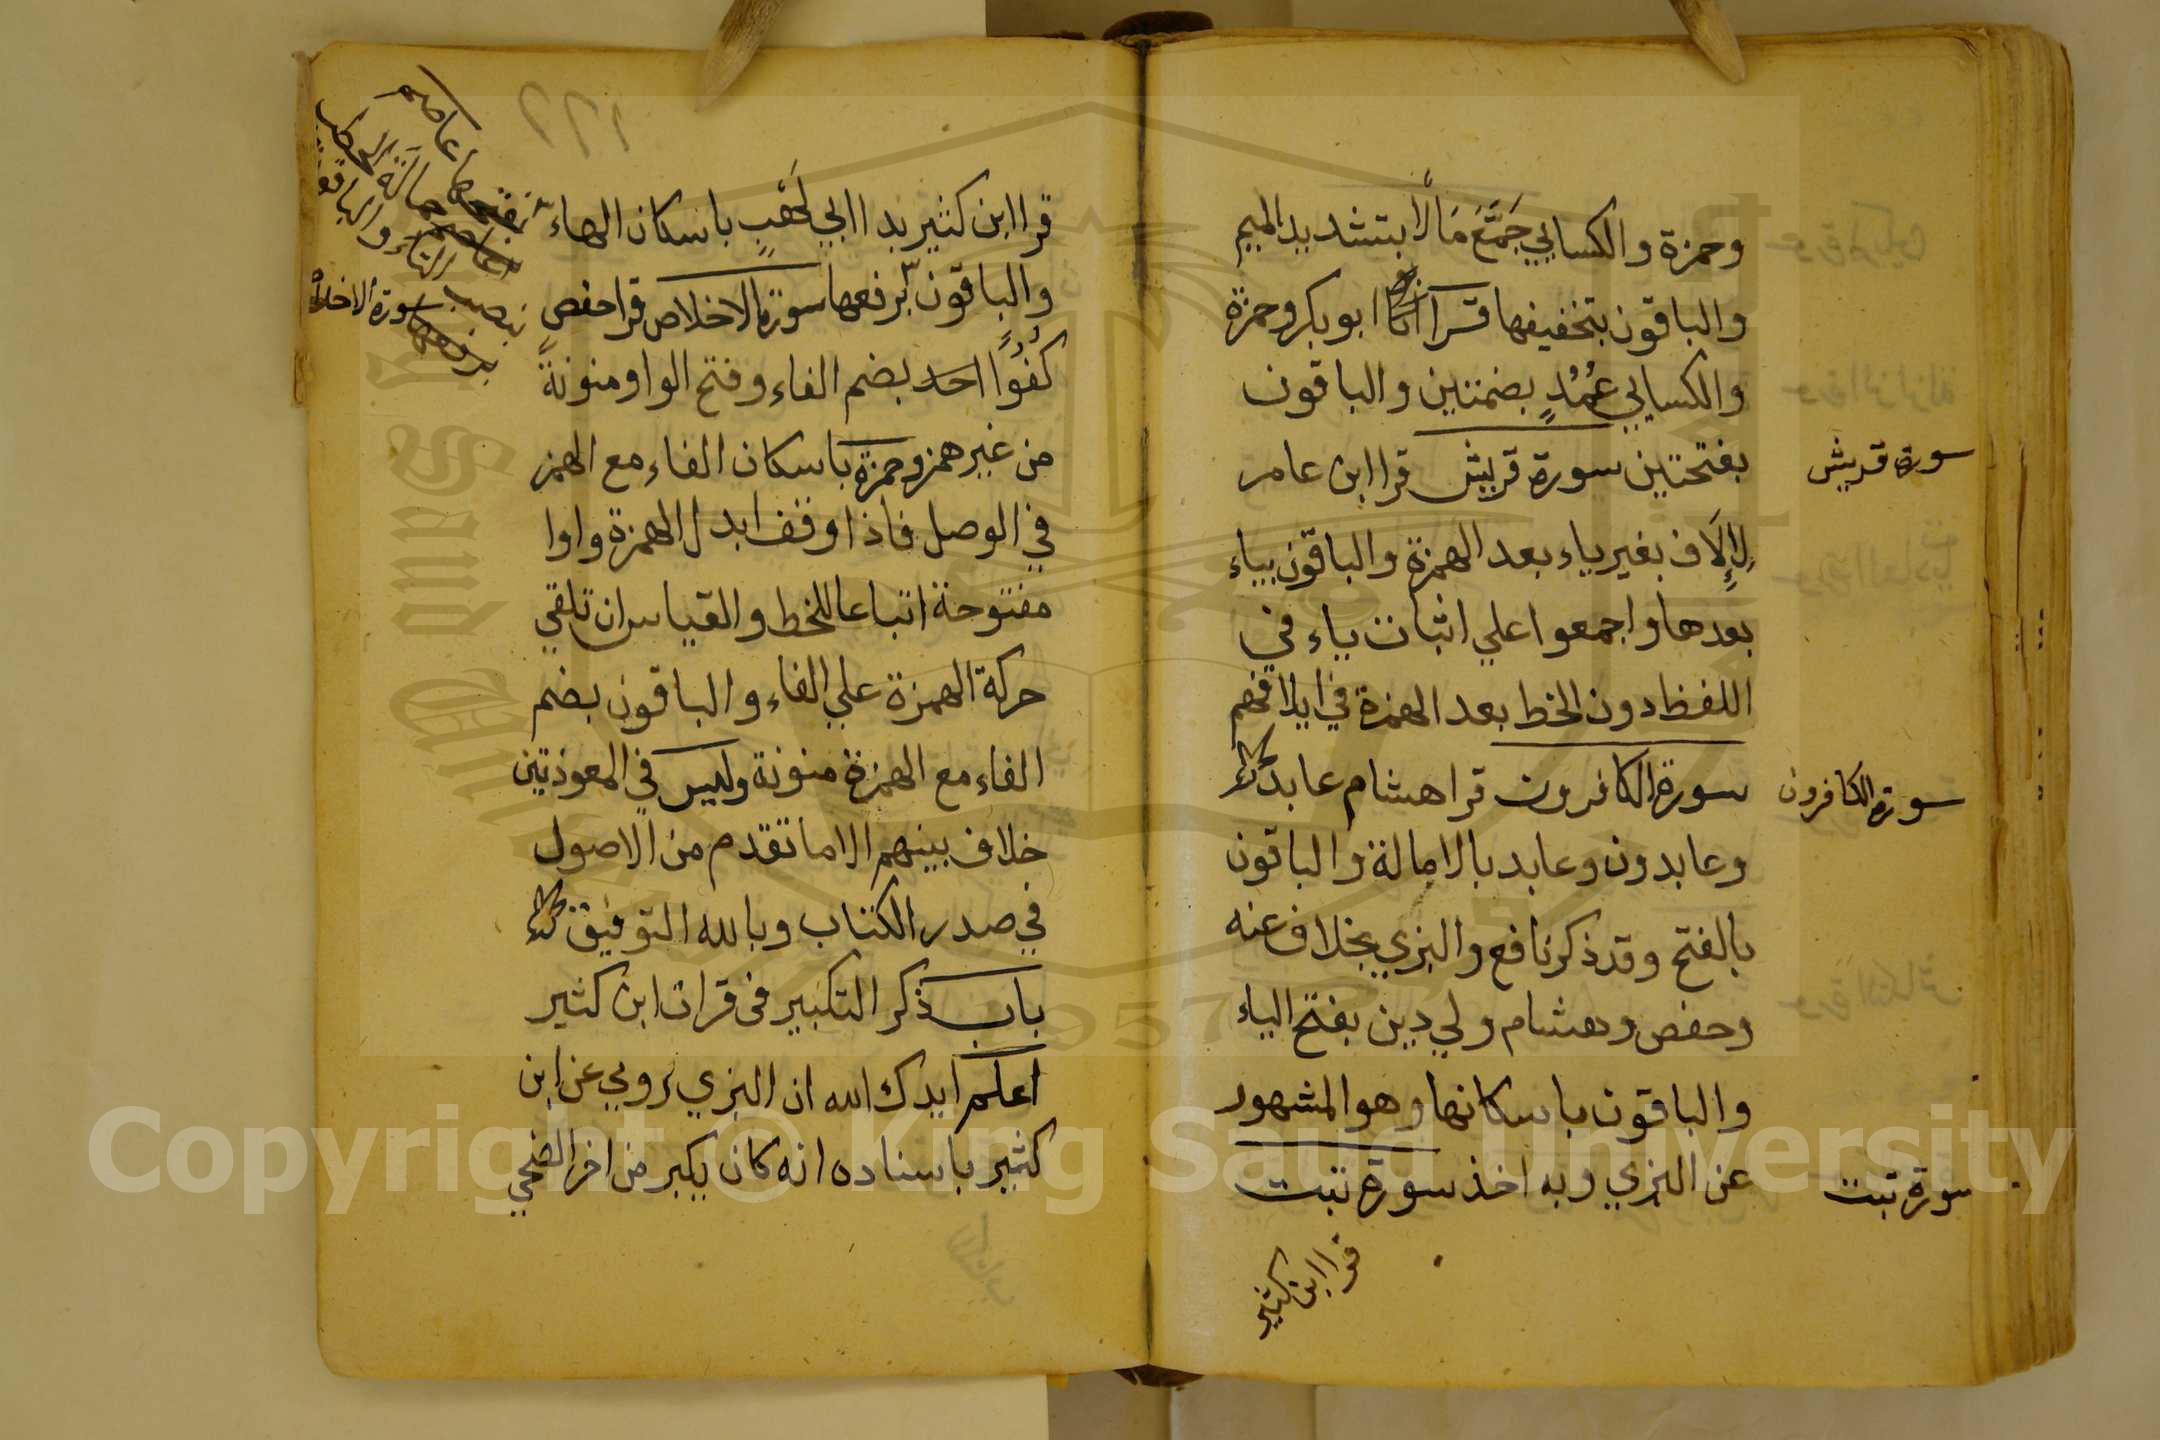 وحمزة والكسايي جَمَّعَ مَالًا بتشديد الميم
والباقون بتخفيفها قرا ابو بكر وحمزة
والكسايي عُمُدٍ بضمتين والباقون
بفتحتين سورة قريش قرا ابن عامر
لِإِلَاف بغير ياء بعد الهمزة والباقون بياء
بعدها واجمعوا علي اثبات ياء في
اللفظ دون الخط بعد الهمزة في ايلافهم
سورة الكافرون قرا هشام عابد
وعابدون وعابد بالامالة والباقون
بالفتح وقد ذكر نافع والبزي بخلاف عنه
وحفص وهشام ولي دين بفتح الياء
والباقون باسكانها وهو المشهور
عن البزي وبه اخذ سورة تبت
قرا ابن كثير
سورة قريش
سورة الكافرون
سورة تبت
١٢٢
قرا ابن كثير يدا ابي لَهْبٍ باسكان الهاء
والباقون برفعها سورة الاخلاص قرا حفص
كُفُوًا احد بضم الفاء وفتح الواو منونةً
من غير همز وحمزة باسكان الفاء مع الهمز
في الوصل فاذا وقف ابدل الهمزة واوا
مفتوحة اتباعا للخط والقياس ان تلقي
حركة الهمزة علي الفاء والباقون بضم
الفاء مع الهمزة منونة وليس في المعوذتين
خلاف بينهم الا ما تقدم من الاصول
في صدر الكتاب وبالله التوفيق
باب ذكر التكبير في قرات ابن كثير
اعلم ايدك الله ان البزي روي عن ابن
كثير باسناده انه كان يكبر من اخر الضحي
عاصم
حمالة الحطب
بنصب التاء والباقون
برفعها سورة الاخلاص
Copyright © King Saud University
1957